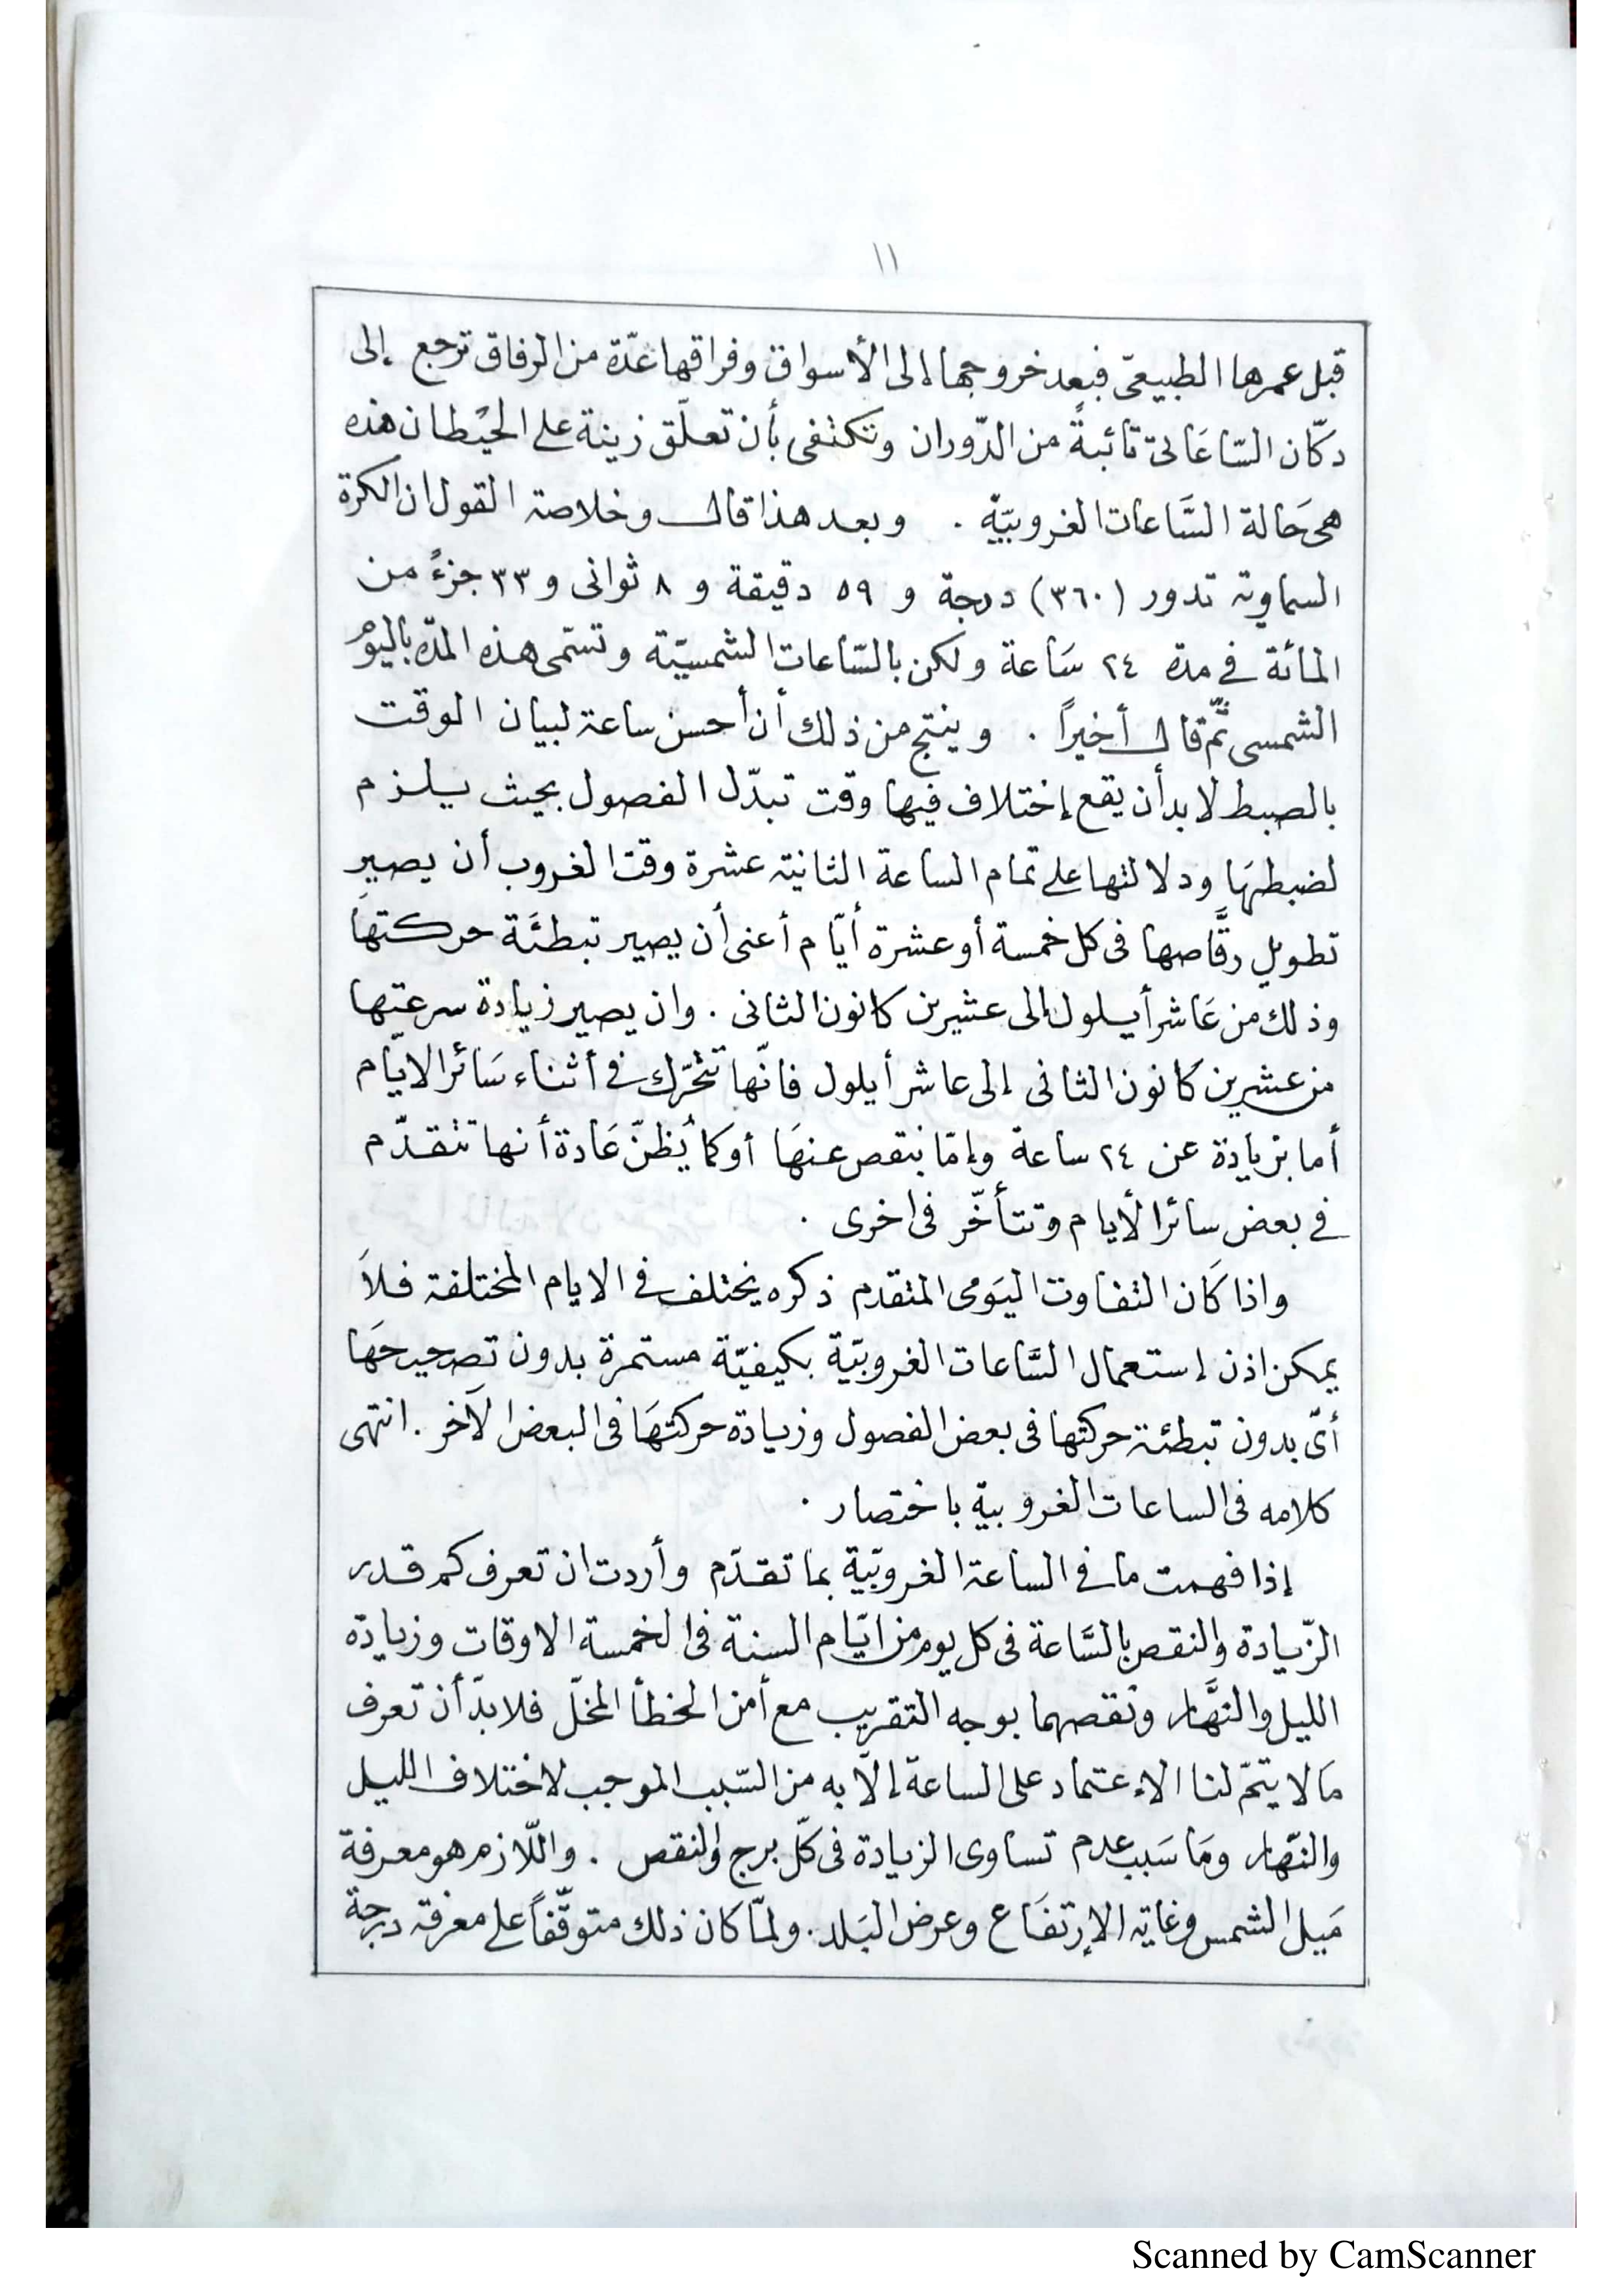 ١١
قبل عمرها الطبيعىّ فبعد خروجها إلى الأسواق وفراقها عدّة من الرفاق ترجع إلى
دكّان السّاعَاتىّ تائبةً من الدّوران وتكتفى بأن تعلّق زينة على الحيْطان هذه
هى حَالة السَّاعات الغروبيّة . وبعد هذا قال وخلاصة القول ان الكرة
السماوية تدور (٣٦٠) درجة و ٥٩ دقيقة و ٨ ثوانى و ٣٣ جزءً من
المائة فى مدة ٢٤ سَاعة ولكن بالسّاعات الشمسيّة وتسّمى هذه المدّه باليوم
الشمسى ثمّ قال أخيراً . وينتج من ذلك أن أحسن ساعة لبيان الوقت
بالضبط لا بد أن يقع إختلاف فيها وقت تبدّل الفصول بحيث يلزم
لضبطهَا ودلالتها على تمام الساعة الثانية عشرة وقت الغروب أن يصير
تطويل رقَّاصها فى كل خمسة أو عشرة أيّام أعنى أن يصير تبطئَة حركتهَا
وذلك من عَاشر أيلول إلى عشيرين كانون الثانى . وان يصير زيادة سرعتها
من عشرين كانون الثانى إلى عاشر أيلول فانّها تتحرّك فى أثناء سَائر الايّام
أما بزيادة عن ٢٤ ساعة وإمّا بنقص عنهَا أو كما يُظنّ عَادة أنها تتقدّم
فى بعض سائر الأيام وتتأخّر فى اخرى .
واذا كَان التفاوت اليَومى المتقدم ذكره يختلف فى الايام المختلفة فلاَ
يمكن اذن إستعمال السَّاعات الغروبيّة بكيفيّة مستمرة بدون تصحيحهَا
أىّ بدون تبطئة حركتها فى بعض الفصول وزيادة حركتهَا فى البعض الآخر . انتهى
كلامه فى الساعات الغروبية باختصار .
إذا فهمت ما فى الساعة الغروبيّة بما تقدّم وأردت ان تعرف كم قدر
الزّيادة والنقص بالسَّاعة فى كل يوم من ايّام السنة فى الخمسة الاوقات وزيادة
الليل والنهَّار ونقصهما بوجه التقريب مع أمن الخطأ المخلّ فلا بدّ أن تعرف
مَا لا يتمّ لنا الاعتماد على الساعة إلاّ به من السّبب الموجب لاختلاف الليل
والنّهار ومَا سَبب عدم تساوى الزيادة فى كلّ برج والنقص . واللّازم هو معرفة
مَيل الشمس وغاية الإرتفَاع وعرض البَلد . ولمّا كان ذلك متوقّفاً على معرفة درجة
Scanned by CamScanner